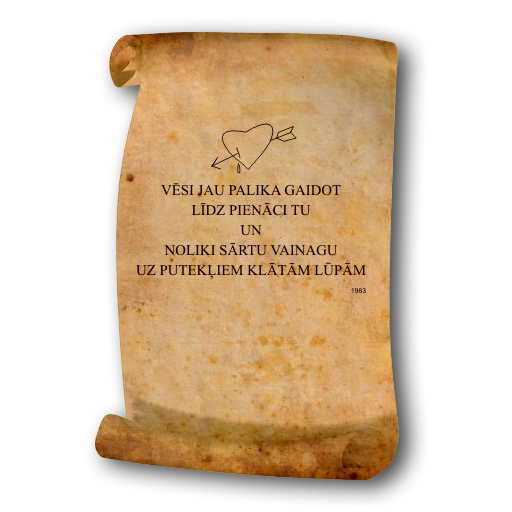 VĒSI JAU PALIKA GAIDOT
LĪDZ PIENĀCI TU
UN
NOLIKI SĀRTU VAINAGU
UZ PUTEKĻIEM KLĀTĀM LŪPĀM
1983